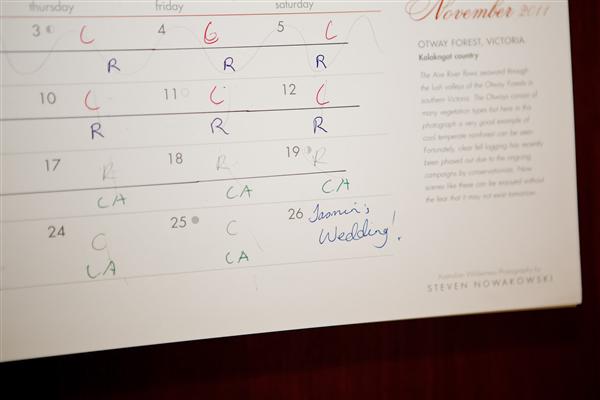 thursday friday saturday
3 C 4 C 5 C
R R R
10 C 11 C 12 C
R R R
17 R 18 R 19 R
CA CA CA
24 C 25 C 26 Jasmin's
Wedding!
CA CA
November 2011
OTWAY FOREST, VICTORIA
Kolakngat country
The Aire River flows seaward through
the lush valleys of the Otway Forests in
southern Victoria. The Otways consist of
many vegetation types but here in this
photograph a very good example of
cool temperate rainforest can be seen.
Fortunately, clear fell logging has recently
been phased out due to the ongoing
campaigns by conservationists. Now
scenes like these can be enjoyed without
the fear that it may not exist tomorrow.
Australian Wilderness Photography by
STEVEN NOWAKOWSKI